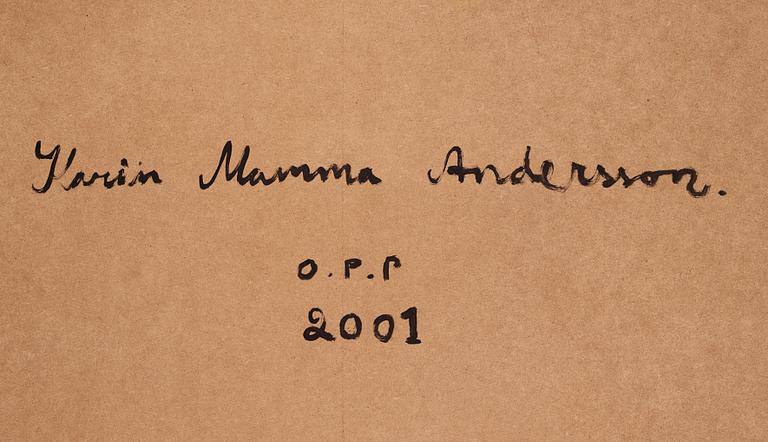 Karin Mamma Andersson.
O.P.P
2001